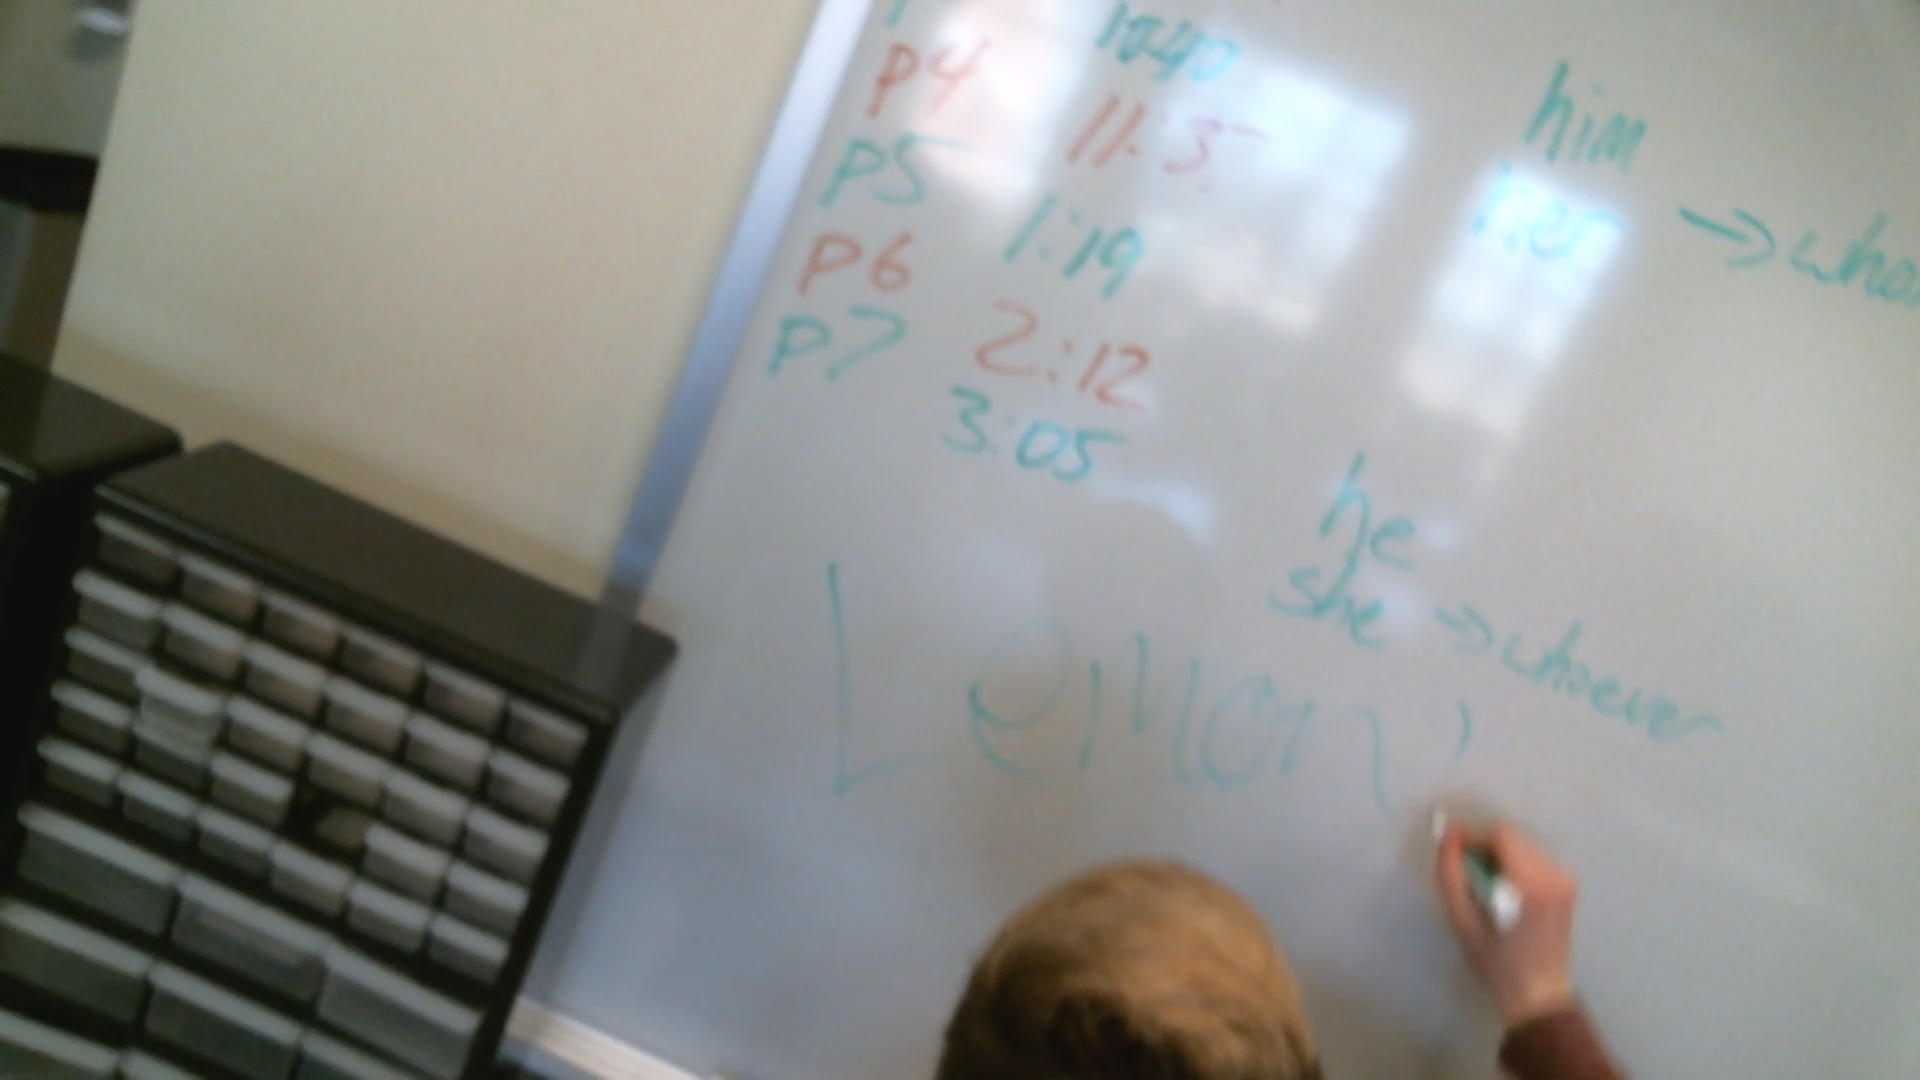 10:40
P4
11:3
P5
1:19
P6
2:12
P7
3:05
him
her →
he
she → whoever
Lemon